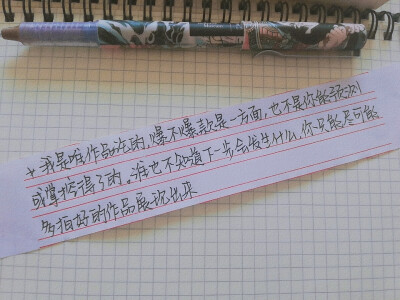 + 我是唯作品论的,爆不爆款是一方面,也不是你能预测
或掌控得了的。谁也不知道下一步会发生什么,你只能尽可能
多拍好的作品展现出来